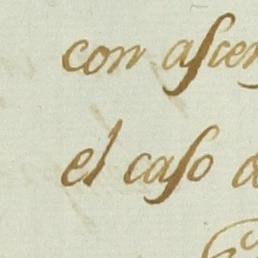 con ascen
el caso d